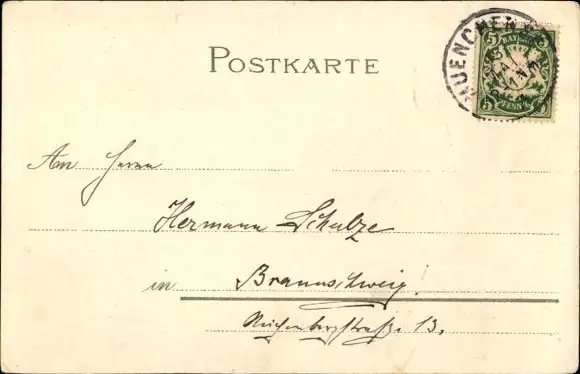 POSTKARTE
MUENCHEN
BAYERN
5 5
5 PFENNIG 5
An Herrn
Hermann Schulze
in Braunschweig.
13.